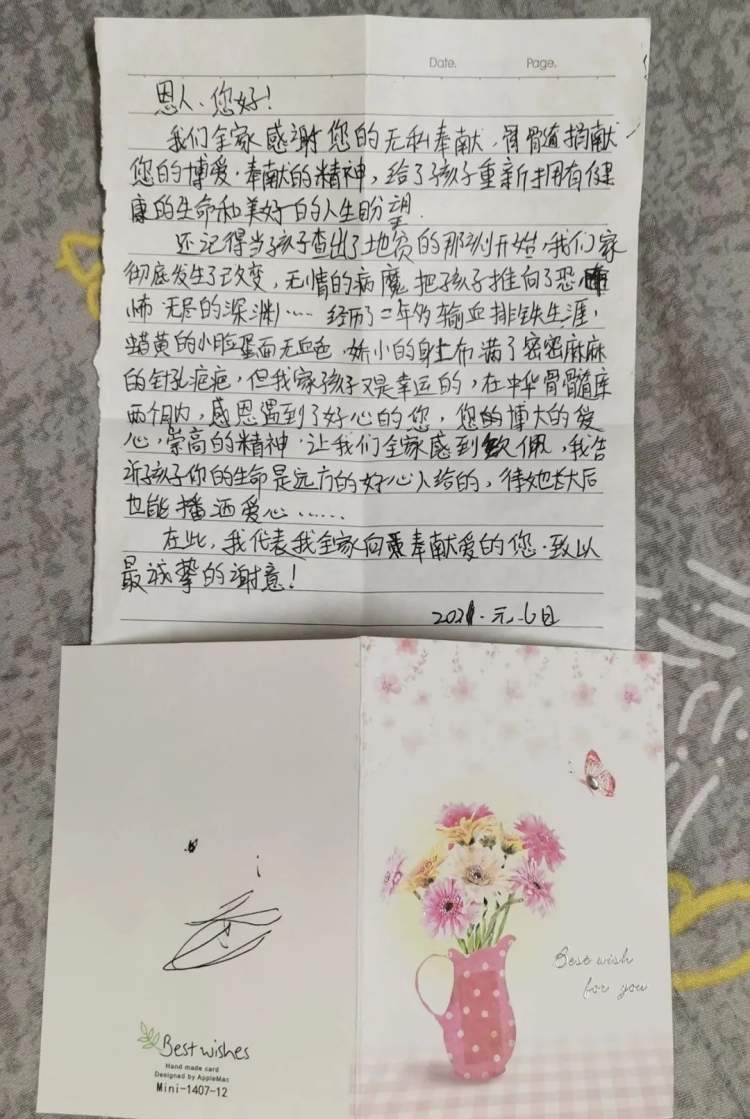 Date. Page.
恩人、您好!
我们全家感谢您的无私奉献,骨骨道捐献
您的博爱.奉献的精神,给了孩子重新拥有健
康的生命和美好的人生盼望.
还记得当子孩子查出了地贫的那刻开始,我们家
彻底发生了改变,无情的病魔把子孩子推向了恐
怖无尽的深渊…… 经历了二年多输血排铁生涯,
蜡黄的小脸蛋面无血色.娇小的身上布满了密密麻麻
的针孔疤疤,但我家孩子又是幸运的,在中华骨骨髓库
两个月内,感恩遇到了好心的您,您的博大的爱
心,崇高的精神.让我们全家感到钦佩,我告
诉子孩子你的生命是远方的好心人给的,待她长大后
也能播洒爱心……
在此,我代表我全家向奉献爱的您.致以
最诚挚的谢意!
2021.元.6日
Best wish
for you
Best wishes
Hand made card
Designed by AppleMac
Mini-1407-12